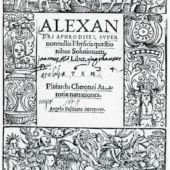 ALEXAN
DRI APHRODISEI, SVPER
nonnullis Physicis quæstio
nibus Solutionum,
Liber.
TEM,
Plutarchi Cheronei Am
toriæ narrationes.
Angelo Politiano interprete.